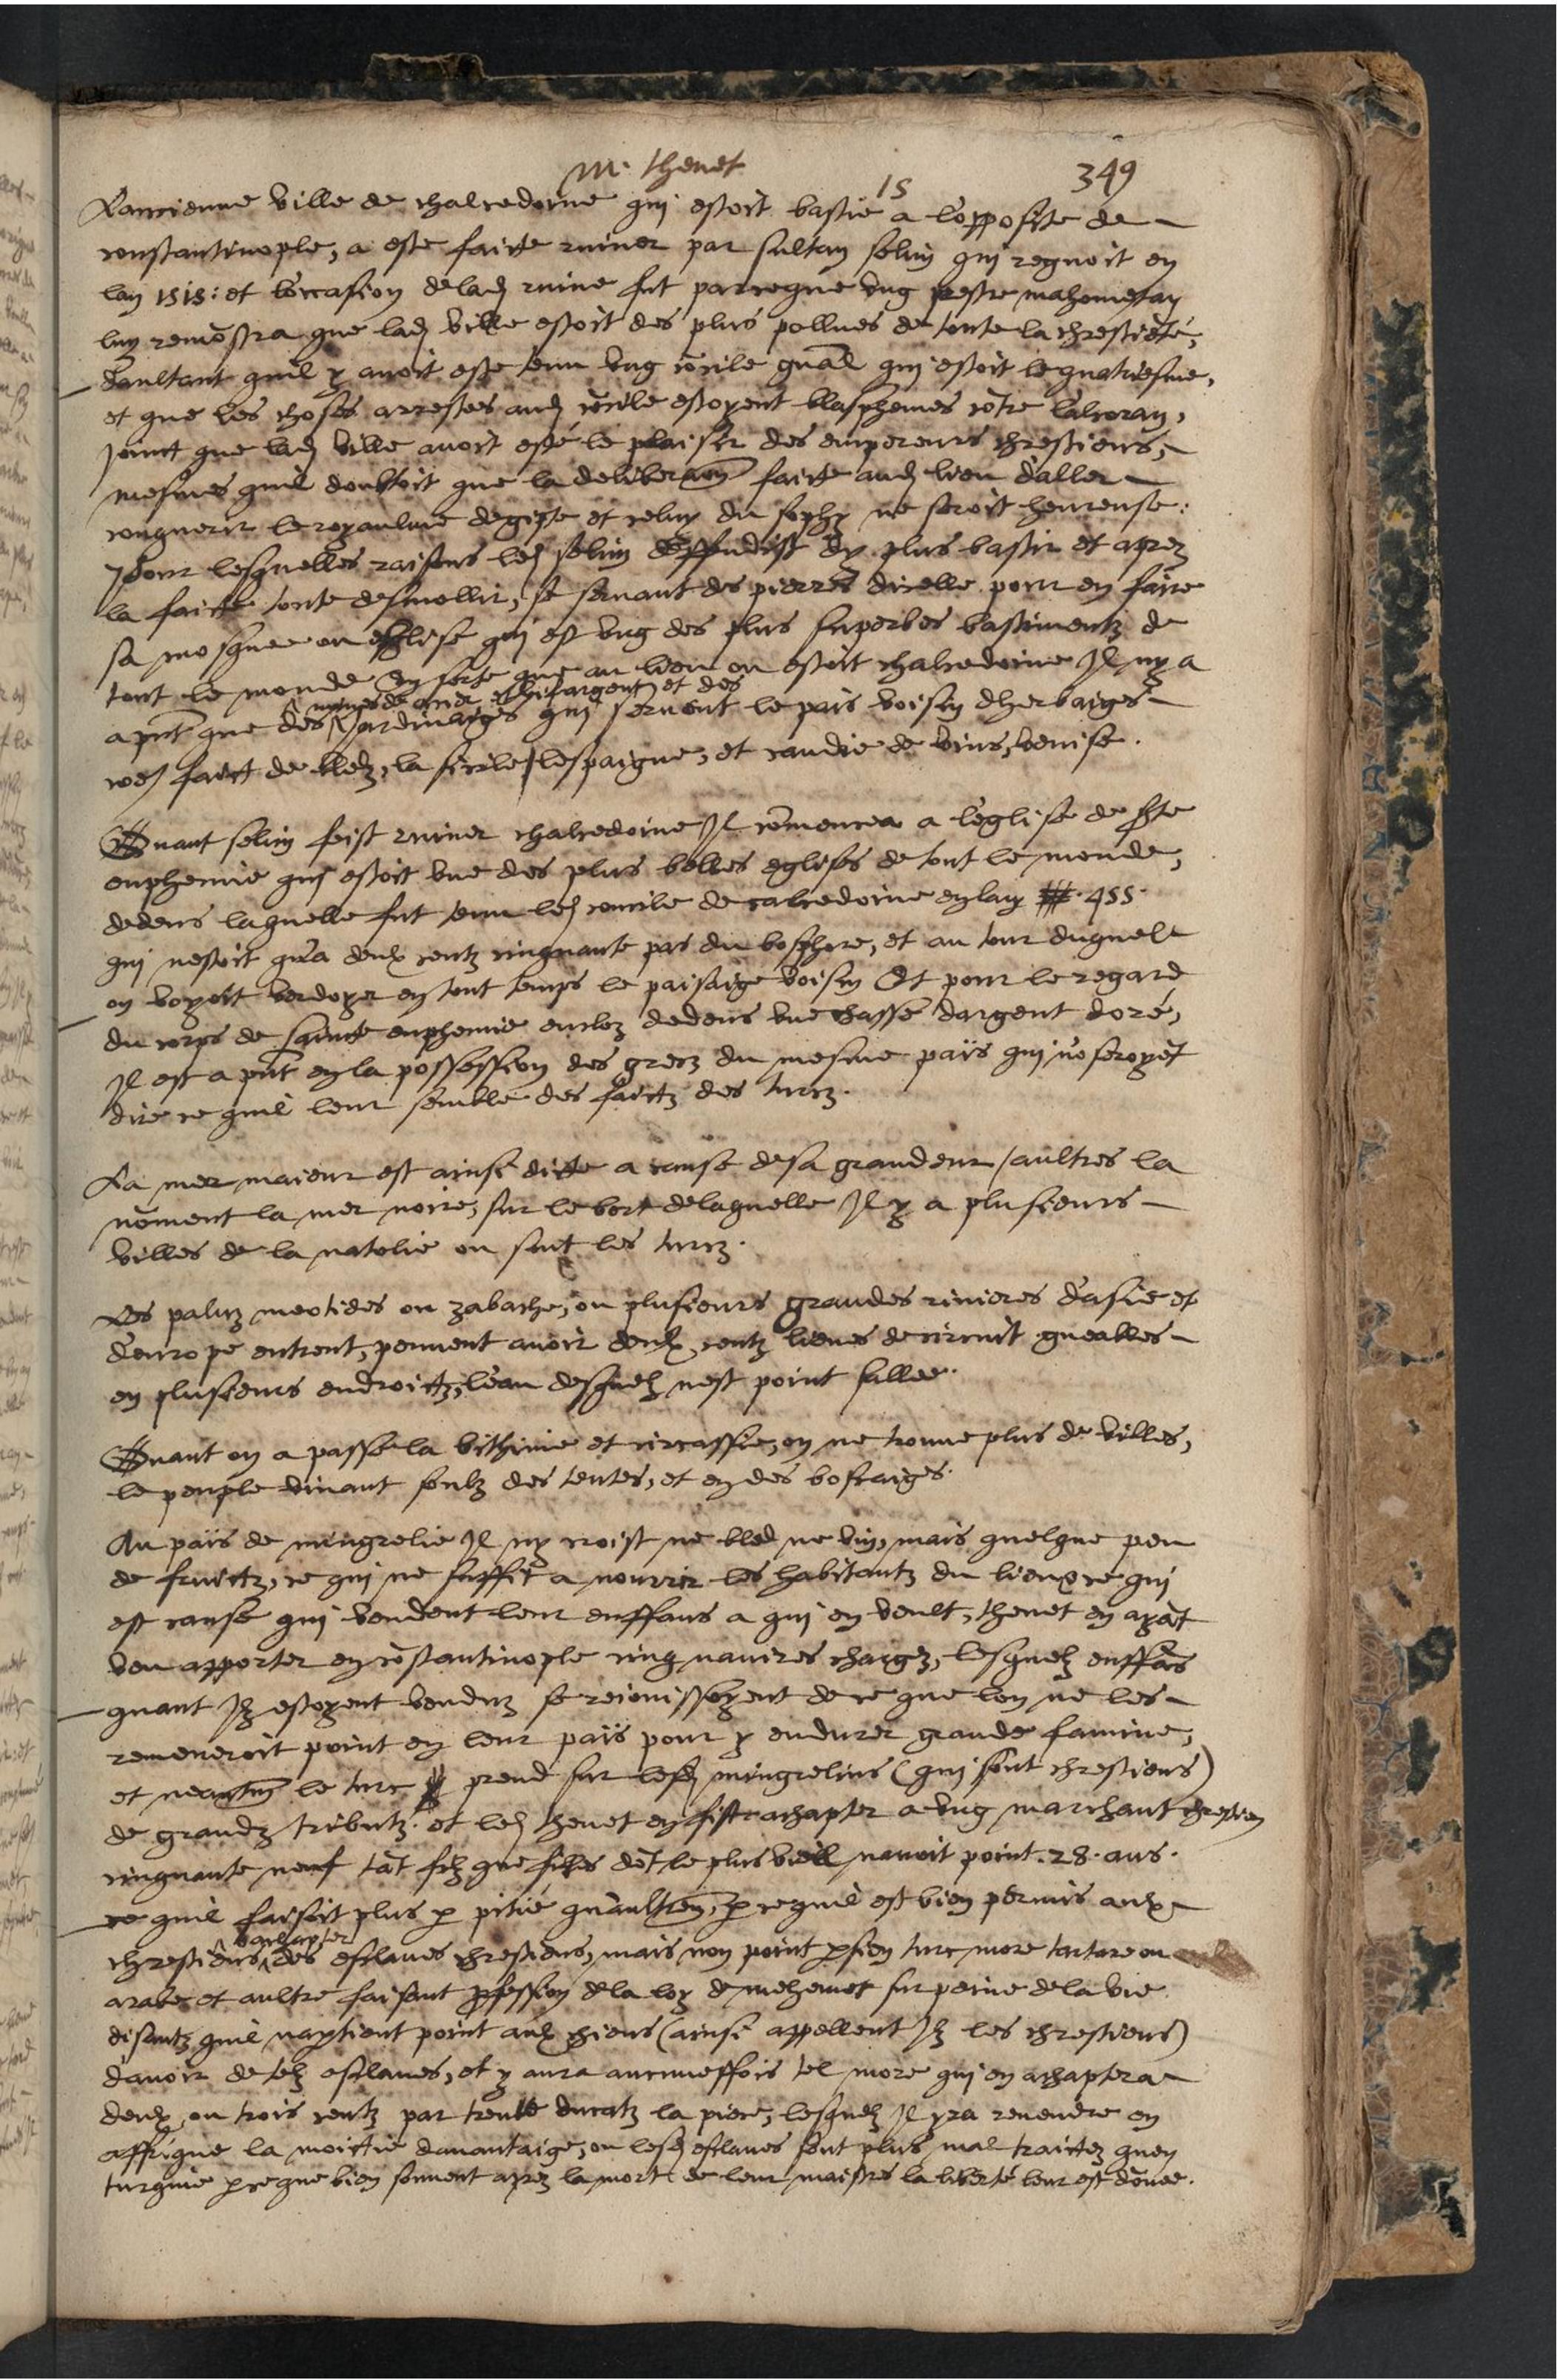 M. thevet
15
349
Lancienne ville de chalcedoine qui estoit bastie a lopposite de
constantinople, a este faitte ruiner par sultan selim qui regnoit en
lan 1515: et loccasion de lad ruine fut parceque ung prestre mahometan
luy remõstra que lad ville estoit des plus pollues de toute la chrestiẽté,
daultant quil y avoit este tenu ung cõcile gnãl qui estoit le quatriesme,
et que les choses arrestes aud cõcile estoyent blasphemes cõtre lalcoran,
joinct que lad ville avoit esté le plaisir des empereurs chrestiens,
mesmes quil doubtoit que la deliberaõn faitte aud lieu daller
conquerir le royaulme degipte et celuy du sophy ne seroit heureuse:
Pour lesquelles raisons led selim deffendist dy plus bastir et aprez
la faitte toute desmollir, se servant des pierres dicelle pour en faire
sa mosquee ou esglise qui est ung des plus superbes bastimentz de
tout le monde En sorte que au lieu ou estoit chalcedoine Il ny a
mynes de acier et vif argent et des
a pñt que des jardinaiges qui servent le pais voisin dherbaiges
cõe faict de bledz, la sicile lespaigne, et candie de vins, venise.
Quant selim feist ruiner chalcedoine Il cõmencea a leglise de Ste
euphemie qui estoit une des plus belles eglises de tout le monde,
dedens laquelle fut tenu led concile de calcedoine en lan 455.
qui nestoit qua deux centz cinquante pas du bosphore, et au tour duquel
on voyoit verdoyer en tout temps le paisaige voisin Et pour le regard
du corps de saincte euphemie encloz dedens une chasse dargent doré,
Il est a pñt en la possession des grecz du mesme païs qui noseroyẽt
dire ce quil leur semble des faictz des turcz.
La mer maieur est ainsi ditte a cause de sa grandeur / aultres la
nõment la mer noire, sur le bort de laquelle Il y a plusieurs
villes de la natolie ou sont les turcz.
Les paluz meotides ou zabache, ou plusieurs grandes rivieres dasie et
deurope entrent, peuvent avoir deux centz lieues de circuit gueables
en plusieurs endroictz, leau desquelz nest point sallee.
Quant on a passe la bithinie et circassie, on ne trouve plus de villes,
le peuple vivant soubz des tentes, et en des boscaiges.
Au païs de mingrelie Il ny croist ne bled ne vin, mais quelque peu
de fruictz, ce qui ne suffit a nourrir les habitantz du lieu, ce qui
est cause qui vendent leur enffans a qui en veult, thevet en ayãt
veu apporter en cõstantinople cinq navires chargez, lesquelz enffãs
quant Ilz estoyent venduz se reiouissoyent de ce que lon ne les
remeneroit point en leur païs pour y endurer grande famine,
et neantm le turc prend sur lesd mingreliens (qui sont chrestiens)
de grandz tributz. et led thevet en fist achapter a ung marchant chrestien
cinquante neuf tãt filz que filles dõt le plus vieil navoit point 28. ans.
ce quil faisoit plus p pitie quaultrem, p ce quil est bien permis aux
dachapter
chrestiens des esclaves chrestiens, mais non point persien turc, more tartare ou
arabe et aultre faisant profession de la loy de mehemet sur peine de la vie
disantz quil napartient point aux chiens (ainsi appellent Ilz les chrestiens)
davoir de telz esclaves, et y aura aucuneffois tel more qui en achaptera
deux ou trois centz par trente ducatz la piece, lesquelz Il yra revendre en
affrique la moictie davantaige, ou lesd esclaves sont plus mal traictez quen
turquie p ce que bien souvent aprez la mort de leur maistres la liberté leur est dõnee.